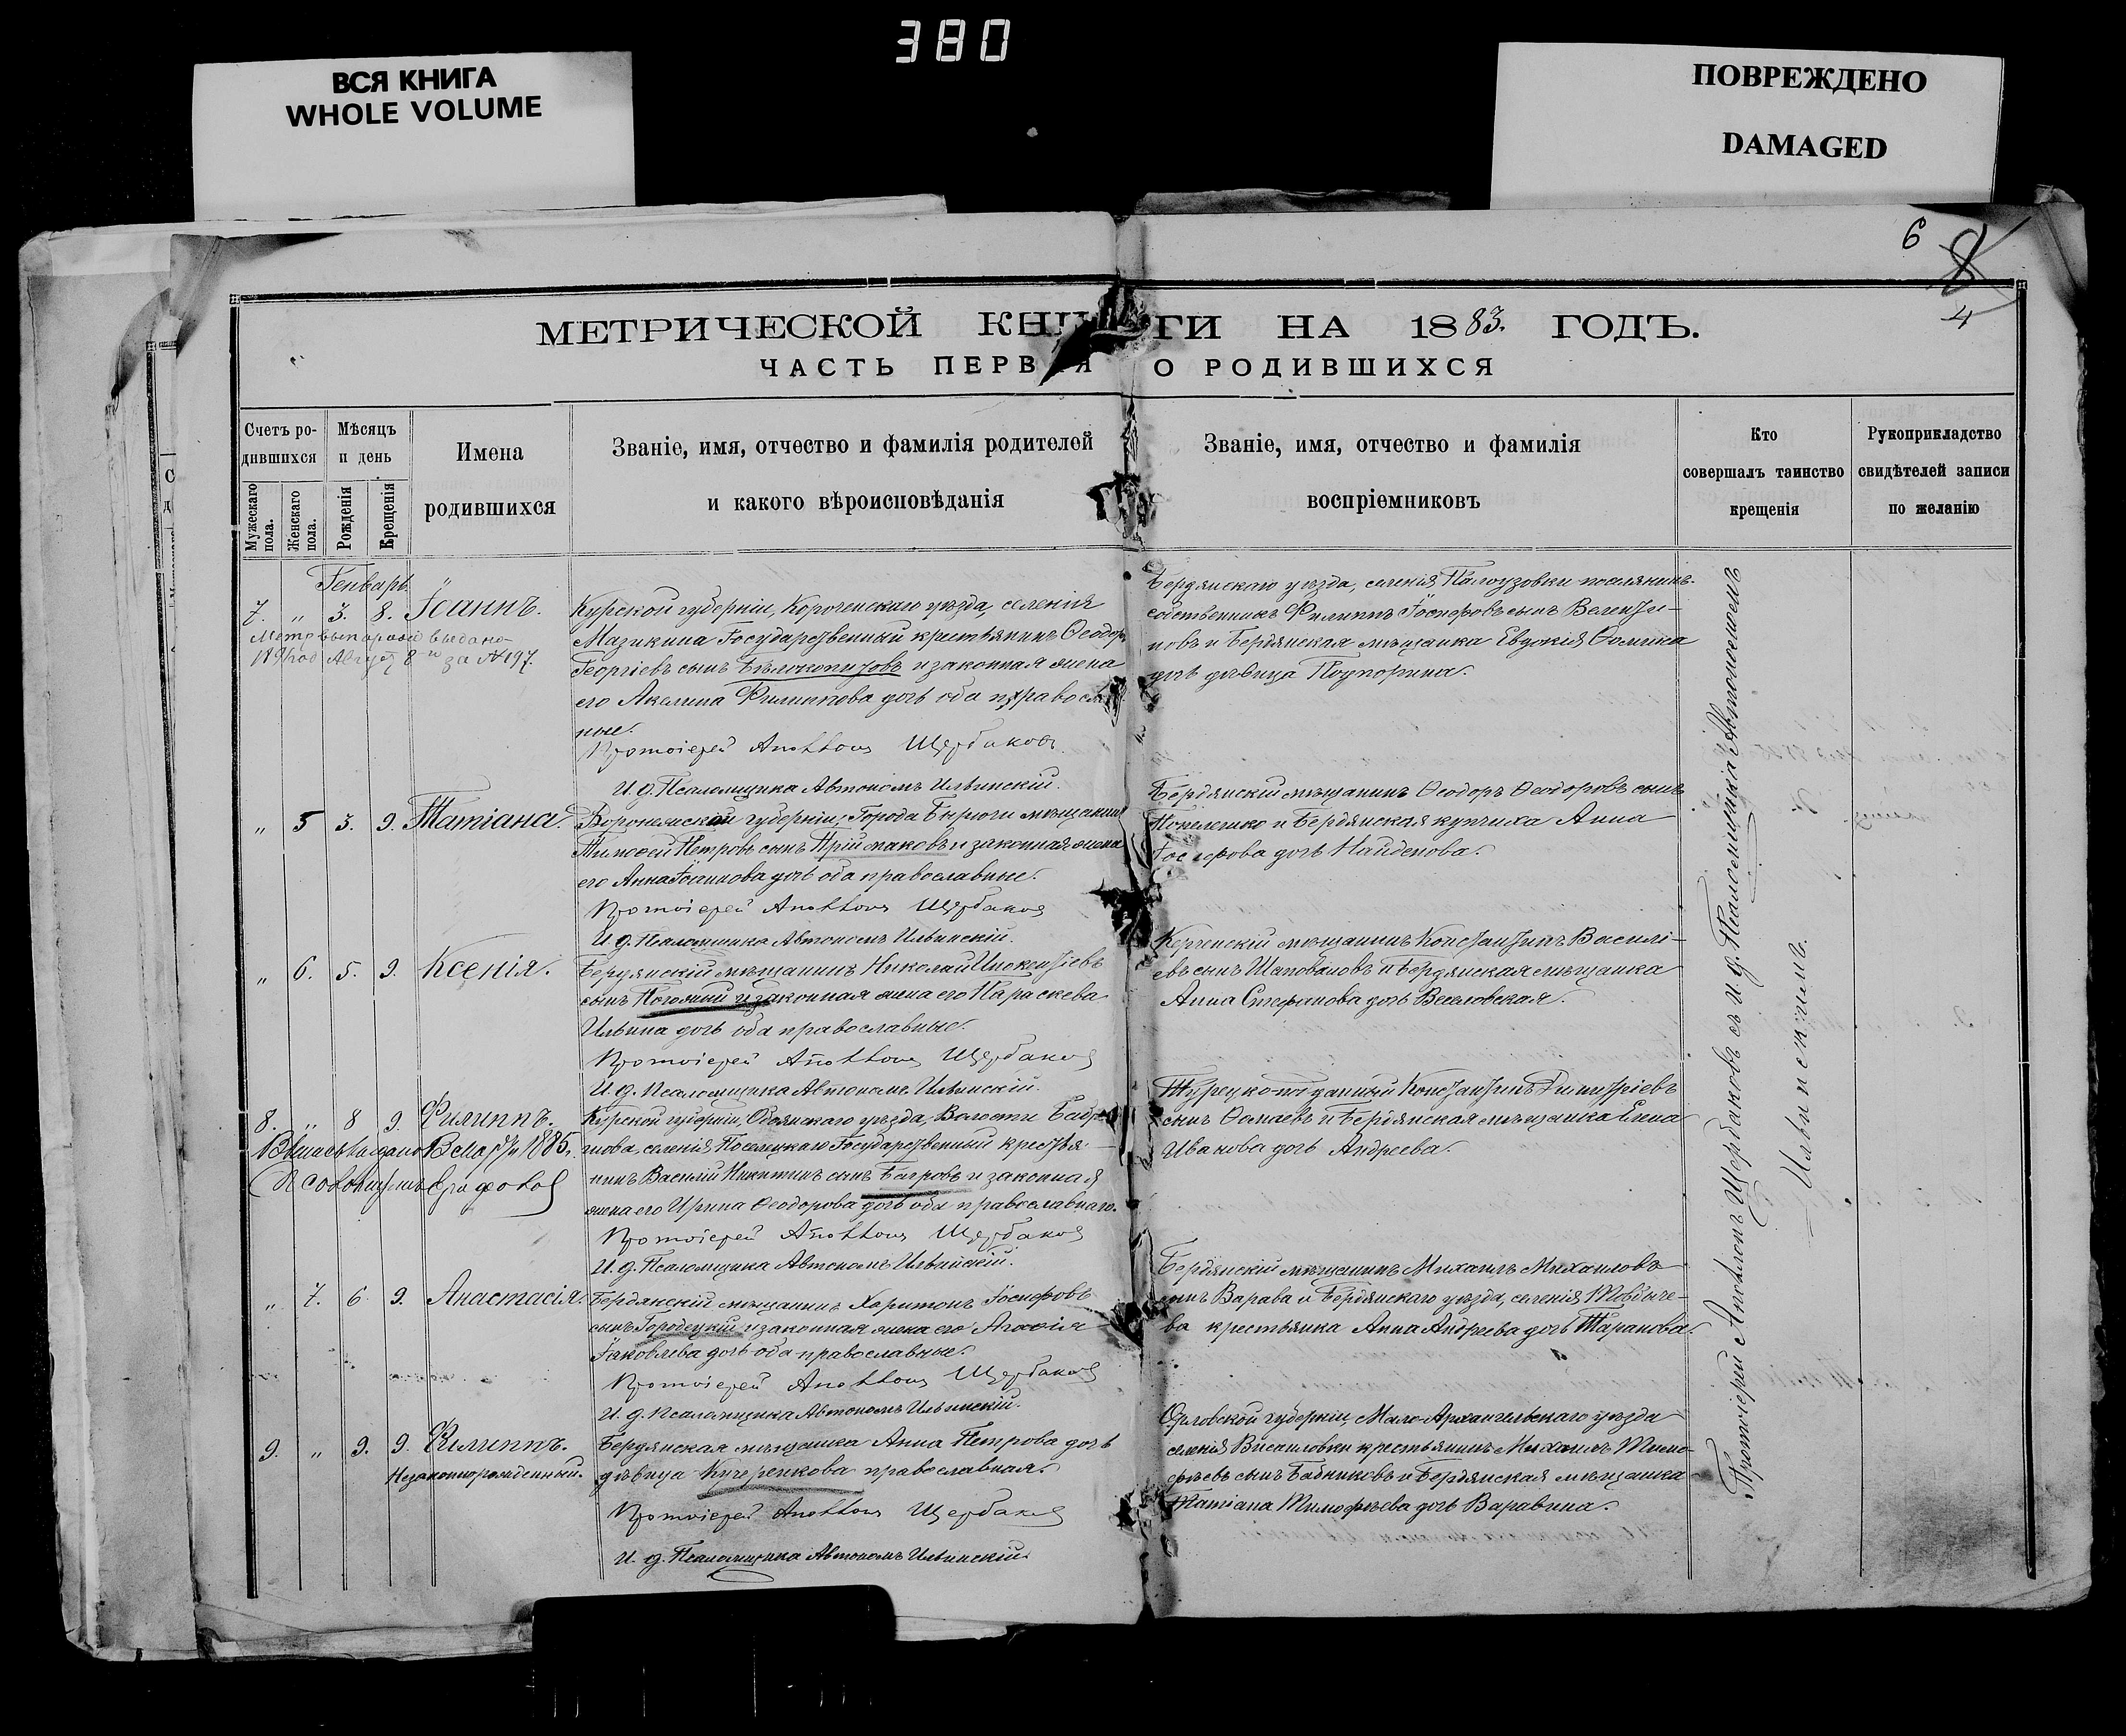 380
ВСЯ КНИГА
WHOLE VOLUME
ПОВРЕЖДЕНО
DAMAGED
6
8
4
МЕТРИЧЕСКОЙ КНИГИ НА 1883. ГОДЪ.
ЧАСТЬ ПЕРВАЯ О РОДИВШИХСЯ
Счетъ ро-
дившихся
Мужескаго пола.
Женскаго пола.
Мѣсяцъ
и день
Рожденія
Крещенія
Имена
родившихся
Званіе, имя, отчество и фамилія родителей
и какого вѣроисповѣданія
Званіе, имя, отчество и фамилія
воспріемниковъ
Кто
совершалъ таинство
крещенія
Рукоприкладство
свидѣтелей записи
по желанію
Генварь
7. " 3. 8. Іоаннъ.
за № 197.
Курской губерніи, Короченскаго уѣзда, селенія
Мазикина Государственный крестьянинъ Ѳеодоръ
Георгіевъ сынъ Бѣлокопытовъ и законная жена
его Акилина Филиппова дочь оба православ
ные.
Протоіерей Щербаковъ
И. д. Псаломщика Автономъ Ильинскій.
Бердянскаго уѣзда, селенія поселянинъ-
собственникъ Филиппъ Іосифовъ сынъ
новъ и Бердянская мѣщанка Евдокія Ѳомина
дочь дѣвица
" 5 3. 9. Татіана.
Воронежской губерніи, Города Бирючи мѣщанинъ
Тимоѳей Петровъ сынъ Приймаковъ и законная жена
его Анна Іоаннова дочь оба православные.
Протоіерей Щербаковъ
И. д. Псаломщика Автономъ Ильинскій.
Бердянскій мѣщанинъ Ѳеодоръ Ѳеодоровъ сынъ
и Бердянская купчиха Анна
Іосифова дочь Найденова.
" 6. 5. 9. Ксенія.
Бердянскій мѣщанинъ Николай Инокентіевъ
сынъ и законная жена его Параскева
Ильина дочь оба православные.
Протоіерей Щербаковъ
И. д. Псаломщика Автономъ Ильинскій.
Керченскій мѣщанинъ Константинъ Василі-
евъ сынъ Шаповаловъ и Бердянская мѣщанка
Анна Стефанова дочь Веселовская.
8. " 8 9. Филиппъ.
1885.
Курской губерніи, Обоянскаго уѣзда, Волости
селенія Государственный крестья-
нинъ Василій Никитинъ сынъ Багровъ и законная
жена его Ирина Ѳеодорова дочь оба православнаго.
Протоіерей Щербаковъ
И. д. Псаломщика Автономъ Ильинскій.
Турецко-подданный Константинъ Димитріевъ
сынъ и Бердянская мѣщанка Елена
Иванова дочь Андреева.
" 7. 6. 9. Анастасія.
Бердянскій мѣщанинъ Харитонъ Іосифовъ
сынъ Городецкій и законная жена его Агаѳія
Іаковлева дочь оба православные.
Протоіерей Щербаковъ
И. д. Псаломщика Автономъ Ильинскій.
Бердянскій мѣщанинъ Михаилъ Михаиловъ
сынъ Варава и Бердянскаго уѣзда, селенія
крестьянка Анна Андреева дочь Таранова.
9. " 9. 9. Филиппъ.
Незаконнорожденный.
Бердянская мѣщанка Анна Петрова дочь
дѣвица Кучеренкова православная.
Протоіерей Щербаковъ
И. д. Псаломщика Автономъ Ильинскій.
Орловской губерніи, Мало-Архангельскаго уѣзда
селенія крестьянинъ Михаилъ Тимо-
фѣевъ сынъ Бобниковъ и Бердянская мѣщанка
Татіана Тимофѣева дочь Варавина.
Протоіерей Щербаковъ съ и. д. Псаломщика Автономомъ
Ильинскимъ.